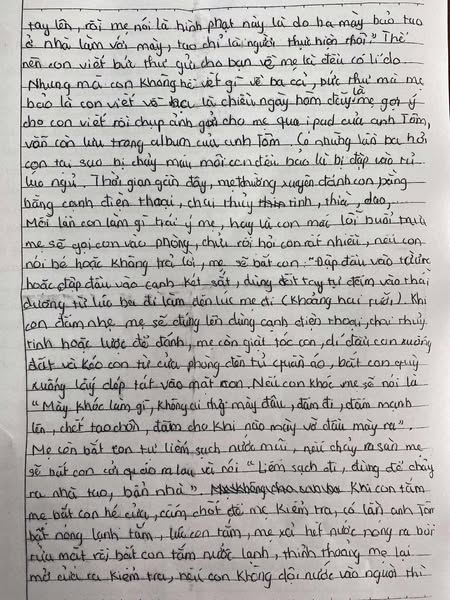 tay lên, rồi mẹ nói là hình phạt này là do ba mày bảo tao
ở nhà làm với mày, tao chỉ là người thực hiện thôi." Thế
nên con viết bức thư gửi cho bạn về mẹ là đều có lí do
Nhưng mà con không hề viết gì về ba cả, bức thư mà mẹ
bảo là con viết về ba là chiều ngày hôm đấy mẹ gợi ý
cho con viết rồi chụp ảnh gửi cho mẹ qua ipad của anh Tôm,
vẫn còn lưu trong album của anh Tôm. Có những lần ba hỏi
con tại sao bị chảy máu mồi con đều bảo là bị đập vào tủ
lúc ngủ. Thời gian gần đây, mẹ thường xuyên đánh con bằng
bằng cạnh điện thoại, chai thủy tinh, thìa, dao,
Mỗi lần con làm gì trái ý mẹ, hay là con mắc lỗi buổi trưa
mẹ sẽ gọi con vào phòng, chửi rồi hỏi con rất nhiều, nếu con
nói bé hoặc không trả lời, mẹ sẽ bắt con: "Đập đầu vào tường
hoặc đập đầu vào cạnh két sắt, dùng đốt tay tự đấm vào thái
dương từ lúc ba đi làm đến lúc mẹ đi (khoảng hai rưỡi). Khi
con đấm nhẹ mẹ sẽ đứng lên dùng cạnh điện thoại, chai thủy
tinh hoặc lược để đánh, mẹ còn giật tóc con, dí đầu con xuống
đất và kéo con từ cửa phòng đến tủ quần áo, bắt con quỳ
xuống lấy dép tát vào mặt con. Nếu con khóc mẹ sẽ nói là
"Mày khóc làm gì, không ai mày đâu, đấm đi, đấm mạnh
lên, chết tao chôn, đấm cho khi nào mày vỡ đầu mày ra".
Mẹ còn bắt con tự liếm sạch nước mũi, nếu chảy ra sàn mẹ
sẽ bắt con cởi quần áo ra lau và nói "Liếm sạch đi, đừng để chảy
ra nhà tao, bẩn nhà". Khi con tắm
mẹ bắt con hé cửa, cấm chốt để mẹ kiểm tra, có lần anh Tôm
bật nóng lạnh tắm, lúc con tắm, mẹ xả hết nước nóng ra bồn
rửa mặt rồi bắt con tắm nước lạnh, thỉnh thoảng mẹ lại
mở cửa ra kiểm tra, nếu con không dội nước vào người thì